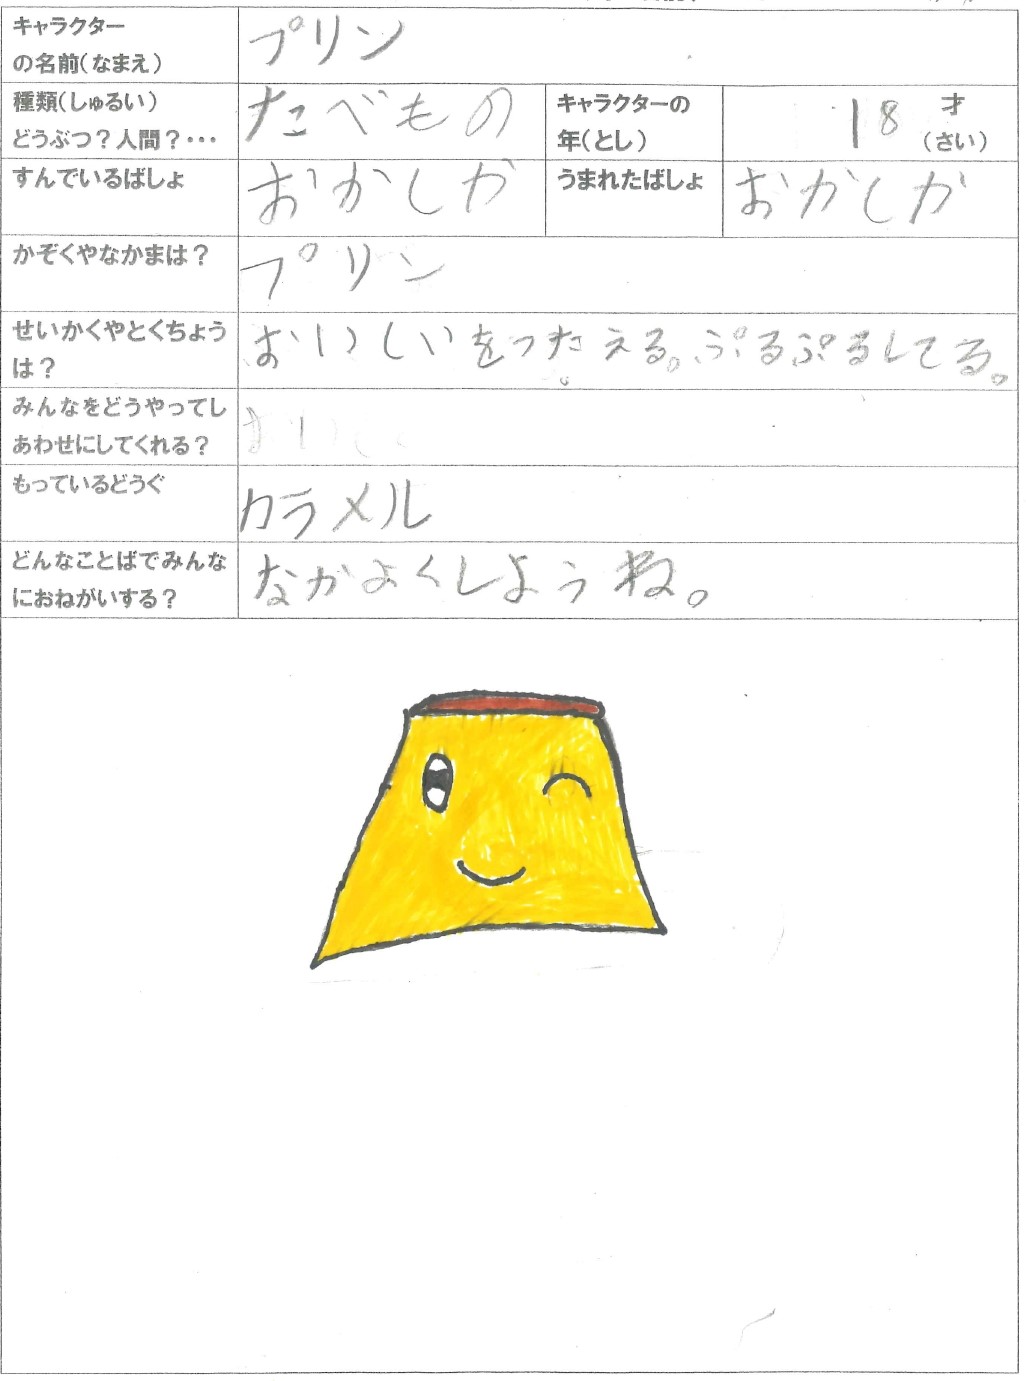 キャラクター
の名前(なまえ)
プリン
種類(しゅるい)
どうぶつ?人間?・・・
たべもの
キャラクターの
年(とし)
18 才
(さい)
すんでいるばしょ
おかしか
うまれたばしょ
おかしか
かぞくやなかまは?
プリン
せいかくやとくちょう
は?
おいしいをつたえる。ぷるぷるしてる。
みんなをどうやってし
あわせにしてくれる?
もっているどうぐ
カラメル
どんなことばでみんな
におねがいする?
なかよくしようね。